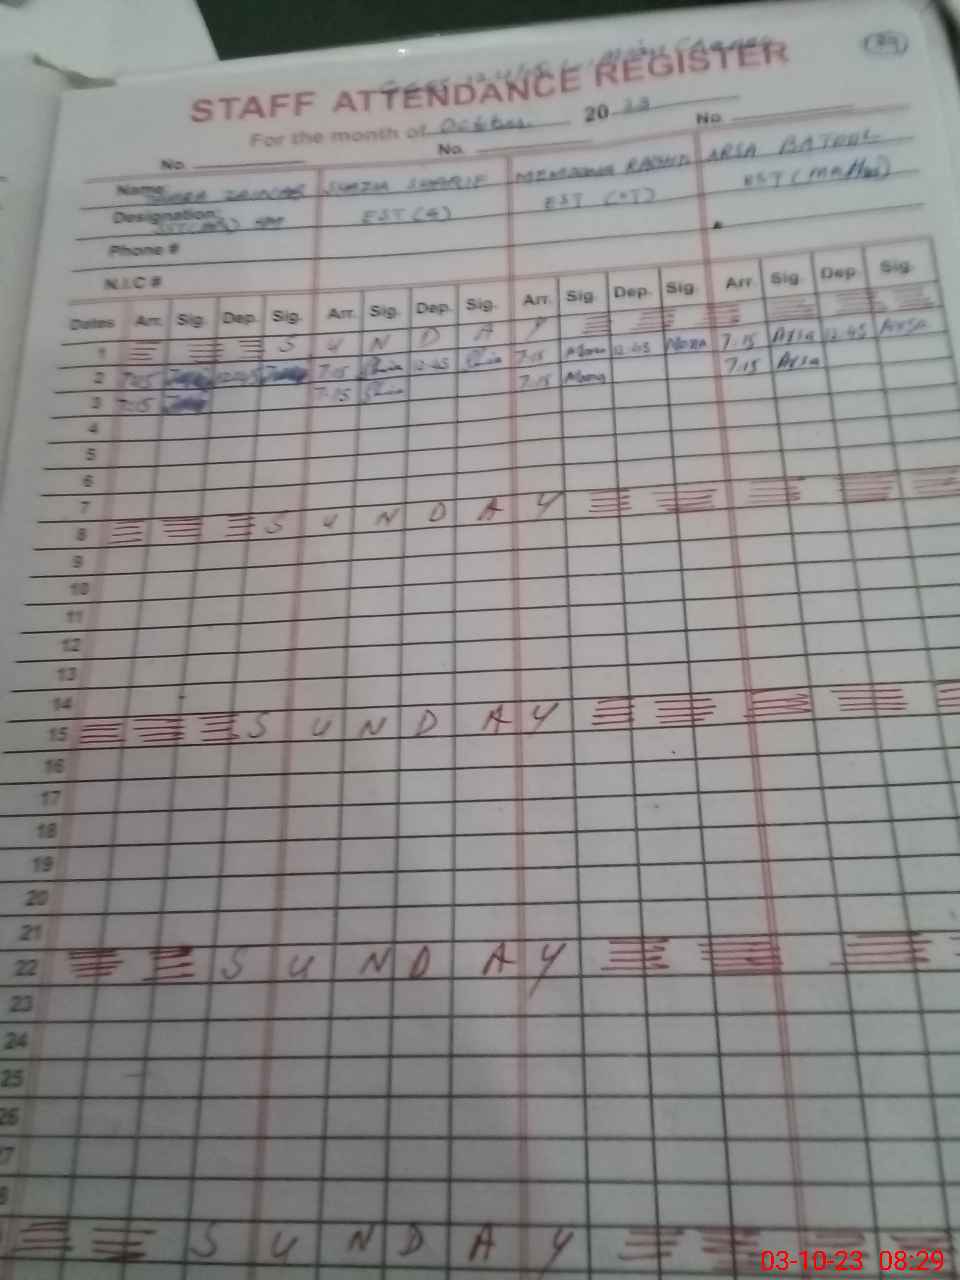 89
STAFF ATTENDANCE REGISTER
For the month of October 2023
No. No. No.
Name: SHAZIA SHARIF RASHID ARSA BATOOL
Designation: EST (OT) EST (Maths)
Phone #
N.I.C #
Dates Arr. Sig. Dep. Sig. Arr. Sig. Dep. Sig. Arr. Sig. Dep. Sig. Arr. Sig. Dep. Sig.
1 S U N D A Y
2 7:15 7:15 12:45 7:15 12:45 7:15 Arsa 12:45 Arsa
3 7:15 7:15 7:15 7:15 Arsa
4
5
6
7
8 S U N D A Y
9
10
11
12
13
14
15 S U N D A Y
16
17
18
19
20
21
22 S U N D A Y
23
24
25
26
7
8
S U N D A Y
03-10-23 08:29